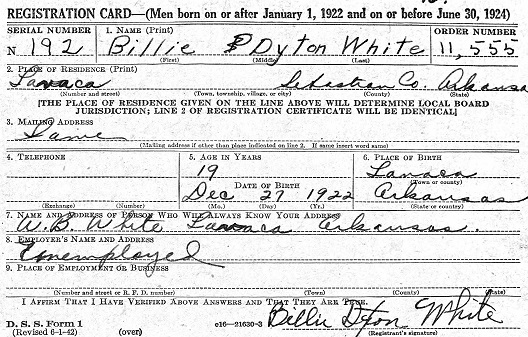 REGISTRATION CARD—(Men born on or after January 1, 1922 and on or before June 30, 1924)
SERIAL NUMBER 1. NAME (Print) ORDER NUMBER
N 192 Billie Dyton White 11,555
(First) (Middle) (Last)
2. PLACE OF RESIDENCE (Print)
Lavaca Sebastian Co. Arkansas
(Number and street) (Town, township, village, or city) (County) (State)
[THE PLACE OF RESIDENCE GIVEN ON THE LINE ABOVE WILL DETERMINE LOCAL BOARD
JURISDICTION; LINE 2 OF REGISTRATION CERTIFICATE WILL BE IDENTICAL]
3. MAILING ADDRESS
Same
(Mailing address if other than place indicated on line 2. If same insert word same)
4. TELEPHONE 5. AGE IN YEARS 6. PLACE OF BIRTH
19 Lavaca
DATE OF BIRTH (Town or county)
Dec 27 1922 Arkansas
(Exchange) (Number) (Mo.) (Day) (Yr.) (State or county)
7. NAME AND ADDRESS OF PERSON WHO WILL ALWAYS KNOW YOUR ADDRESS
W. B. White Lavaca Arkansas.
8. EMPLOYER'S NAME AND ADDRESS
Unemployed
9. PLACE OF EMPLOYMENT OR BUSINESS
(Number and street or R. F. D. number) (Town) (County) (State)
I AFFIRM THAT I HAVE VERIFIED ABOVE ANSWERS AND THAT THEY ARE TRUE.
D. S. S. Form 1 Billie Dyton White
(Revised 6-1-42) (over) c16—21630-3 (Registrant's signature)